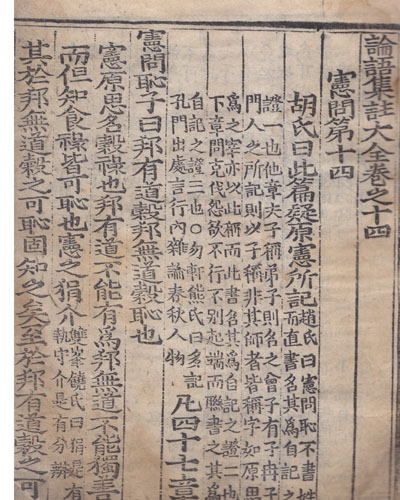 論語集註大全卷之十四
憲問第十四
胡氏曰此篇疑原憲所記
趙氏曰憲問恥不書姓
而直書名其爲自記
證一也他章夫子稱弟子則名之曾子有子冉子
門人之所記則以子稱非其師者皆稱字如原思
爲之宰亦以此稱而此書名其爲自記之證二也
下章問克伐怨欲不行不別起端而聯書之其爲
自記之證三也○勿軒熊氏曰多記
孔門出處言行內雜論春秋人物
凡四十七章
憲問恥子曰邦有道穀邦無道穀恥也
憲原思名穀祿也邦有道不能有爲邦無道不能獨善
而但知食祿皆可恥也憲之狷介
雙峯饒氏曰狷是有
執守介是有分辨
其於邦無道穀之可恥固知之矣至於邦有道穀之可